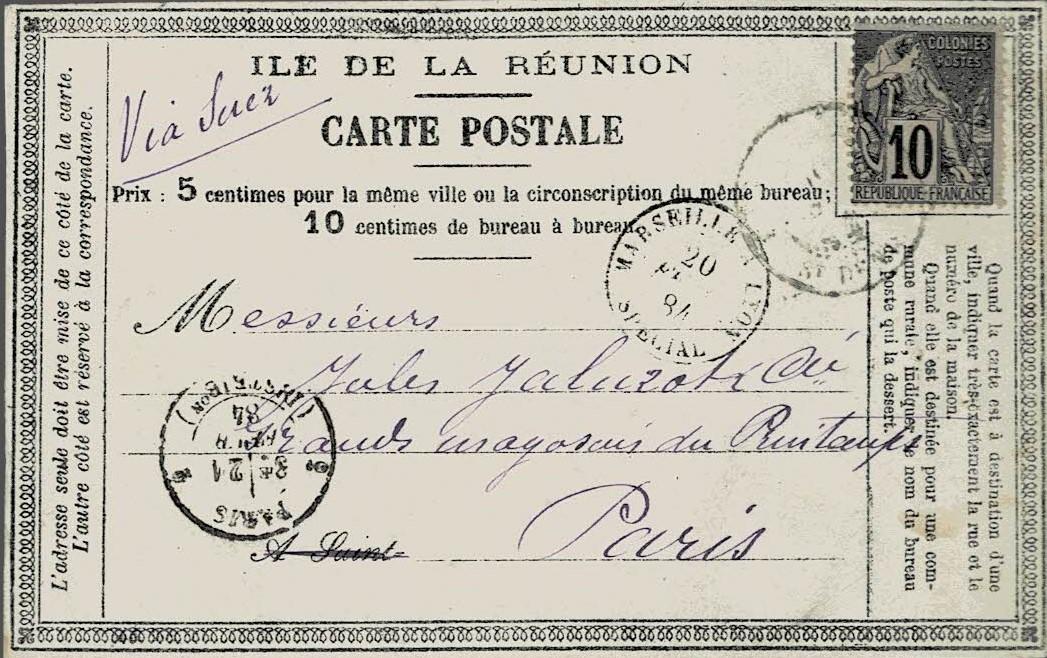 ILE DE LA RÉUNION
Via Suez
CARTE POSTALE
Prix : 5 centimes pour la même ville ou la circonscription du même bureau;
10 centimes de bureau à bureau.
COLONIES
POSTES
10
RÉPUBLIQUE FRANÇAISE
MARSEILLE A LYON
20
84
SPÉCIAL
Messieurs
Jules Jaluzot & Cie
Grands magasins du Printemps
Paris
A Saint-
PARIS
21
84
(DISTRIBON)
L'adresse seule doit être mise de ce côté de la carte.
L'autre côté est réservé à la correspondance.
Quand la carte est à destination d'une
ville, indiquer très-exactement la rue et le
numéro de la maison.
Quand elle est destinée pour une com-
mune rurale, indiquer le nom du bureau
de poste qui la dessert.